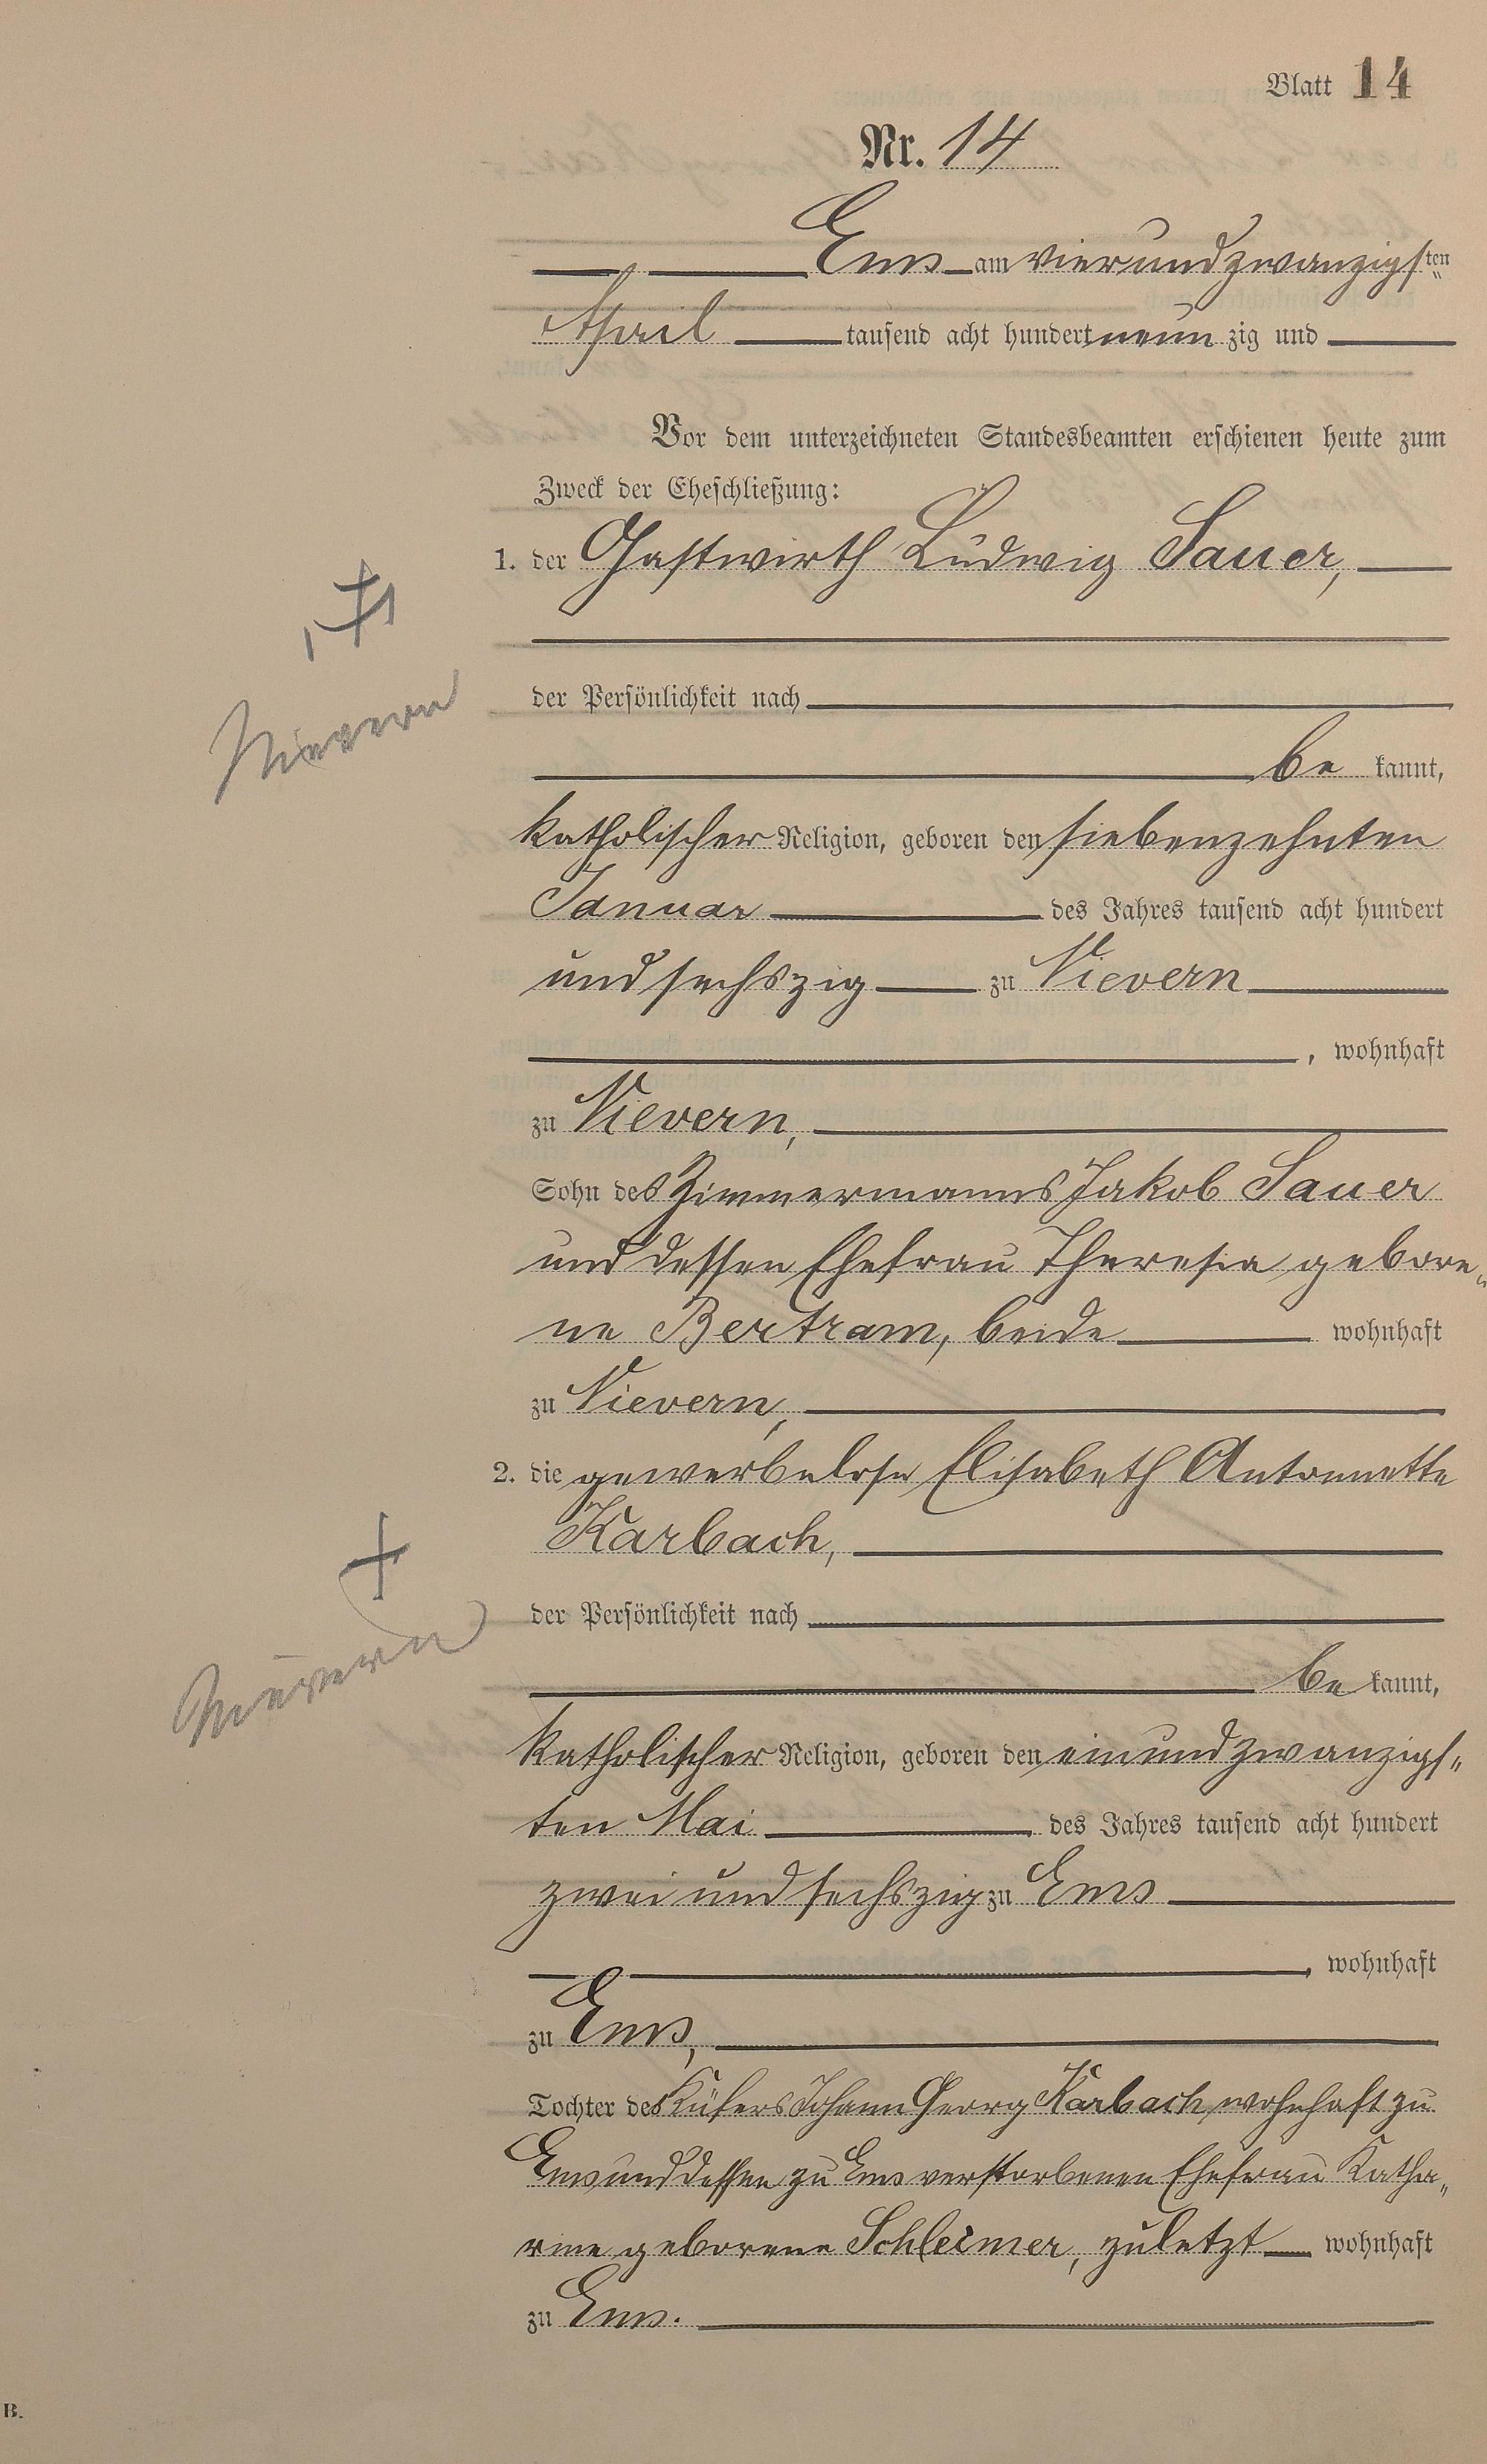 Blatt 14
Nr. 14
Ems am vierundzwanzigsten
April tausend acht hundert neun zig und
Vor dem unterzeichneten Standesbeamten erschienen heute zum
Zweck der Eheschließung:
1. der Gastwirth Ludwig Sauer,
der Persönlichkeit nach
Nievern
be kannt,
katholischer Religion, geboren den siebenzehnten
Januar des Jahres tausend acht hundert
und sechszig zu Nievern
, wohnhaft
zu Nievern,
Sohn des Zimmermanns Jakob Sauer
und dessen Ehefrau Theresia gebore-
ne Bertram, beide wohnhaft
zu Nievern,
2. die gewerbelose Elisabeth Antonnette
Karbach,
der Persönlichkeit nach
Nievern
be kannt,
katholischer Religion, geboren den einundzwanzigs-
ten Mai des Jahres tausend acht hundert
zwei und sechszig zu Ems
, wohnhaft
zu Ems,
Tochter des Küfers Johann Georg Karbach, wohnhaft zu
Ems und dessen zu Ems verstorbenen Ehefrau Katha-
rine geborene Schleimer, zuletzt wohnhaft
zu Ems.
B.